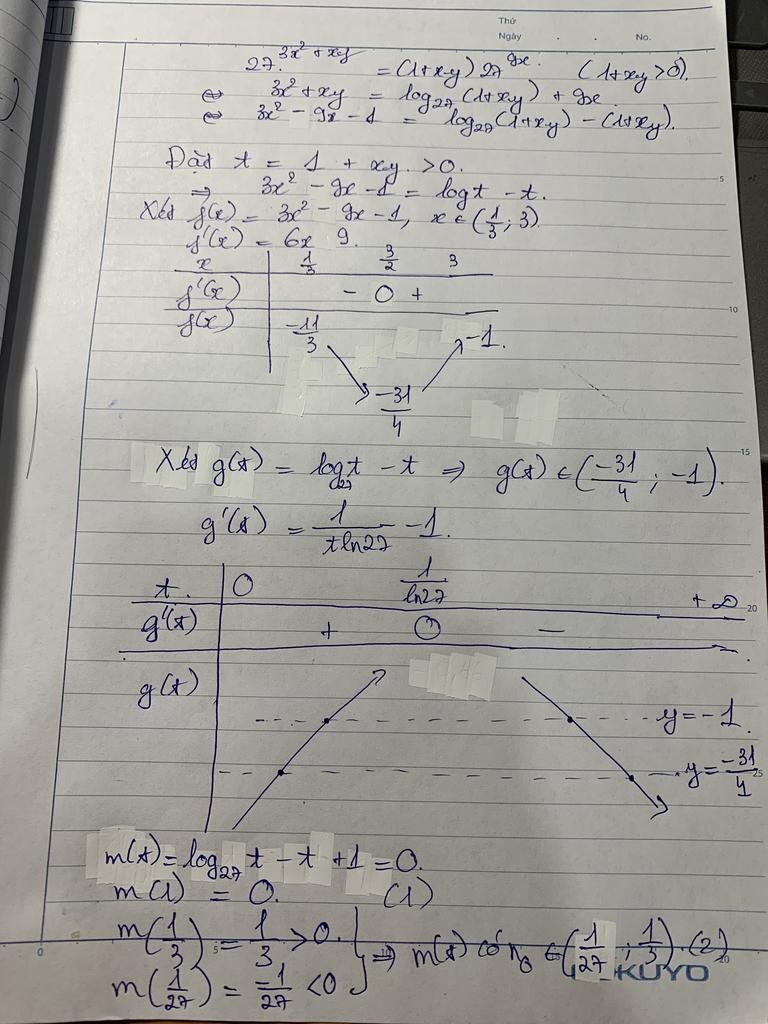 Thứ
Ngày . . No.
27^{3x²+xy} = (1+xy) 27^{9x} (1+xy>0).
⇔ 3x²+xy = log₂₇(1+xy) + 9x.
⇔ 3x² - 9x - 1 = log₂₇(1+xy) - (1+xy).
Đặt t = 1 + xy > 0.
⇒ 3x² - 9x - 1 = log t - t.
Xét f(x) = 3x² - 9x - 1, x ∈ (1/3 ; 3)
f'(x) = 6x 9.
x 1/3 3/2 3
f'(x) - 0 +
f(x) -11/3 -31/4 -1.
Xét g(t) = log₂₇t - t ⇒ g(t) ∈ (-31/4 ; -1).
g'(t) = 1/(t ln27) - 1.
t. 0 1/ln27 +∞
g'(t) + 0 -
g(t)
y = -1.
y = -31/4
m(t) = log₂₇ t - t + 1 = 0.
m(1) = 0. (1)
m(1/3) = 1/3 > 0.
m(1/27) = -1/27 < 0
⇒ m(t) có n₀ ∈ (1/27 ; 1/3). (2)
KUYO
5
10
15
20
25
0
5
10
20